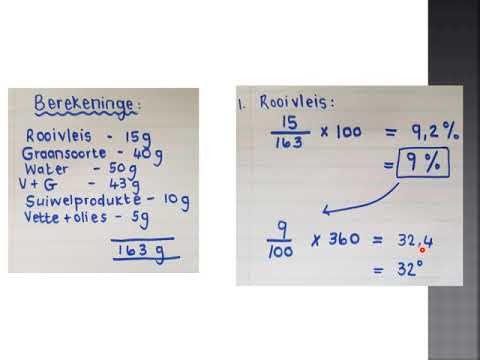 Berekeninge:
Rooivleis - 15g
Graansoorte - 40g
Water - 50g
V+G - 43g
Suiwelprodukte - 10g
Vette+olies - 5g
163 g
1. Rooivleis:
15/163 × 100 = 9,2%
= 9%
9/100 × 360 = 32,4
= 32°